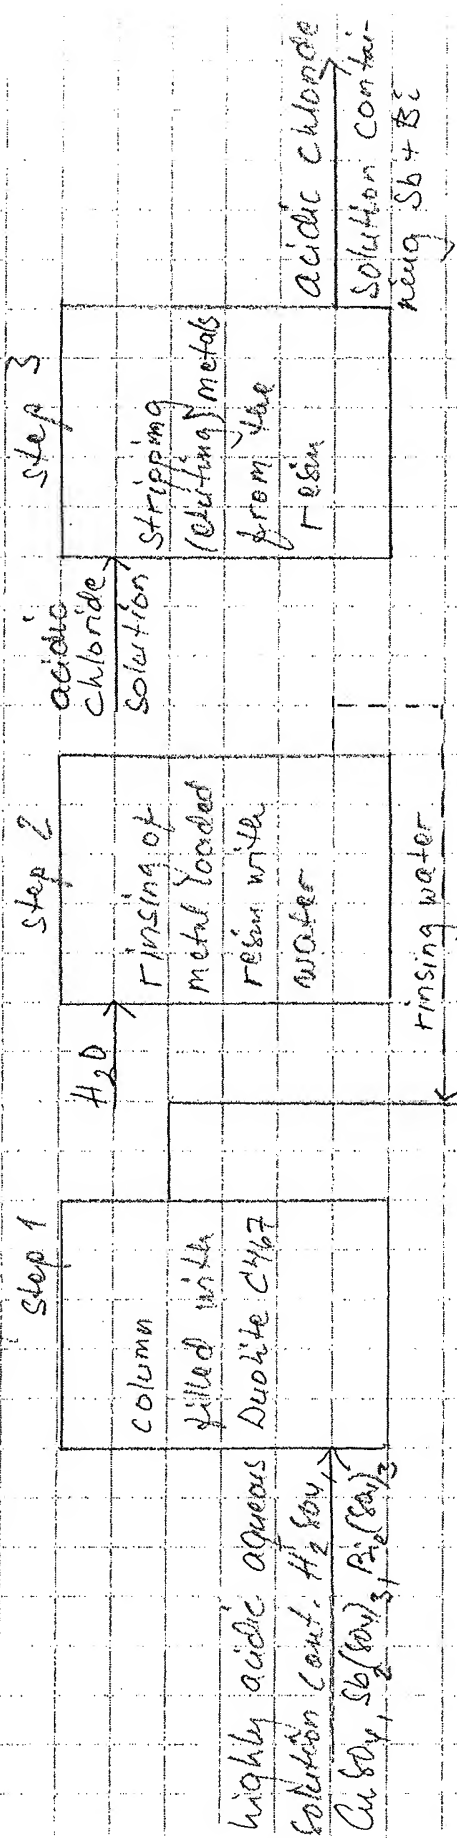 Step 1
highly acidic aqueous
solution cont. H2SO4,
CuSO4, Sb2(SO4)3, Bi2(SO4)3
column
filled with
Duolite C467
Step 2
H2O
rinsing of
metal loaded
resin with
water
rinsing water
Step 3
acidic
chloride
solution
stripping
(eluting) metals
from the
resin
acidic chloride
solution contai-
ning Sb + Bi